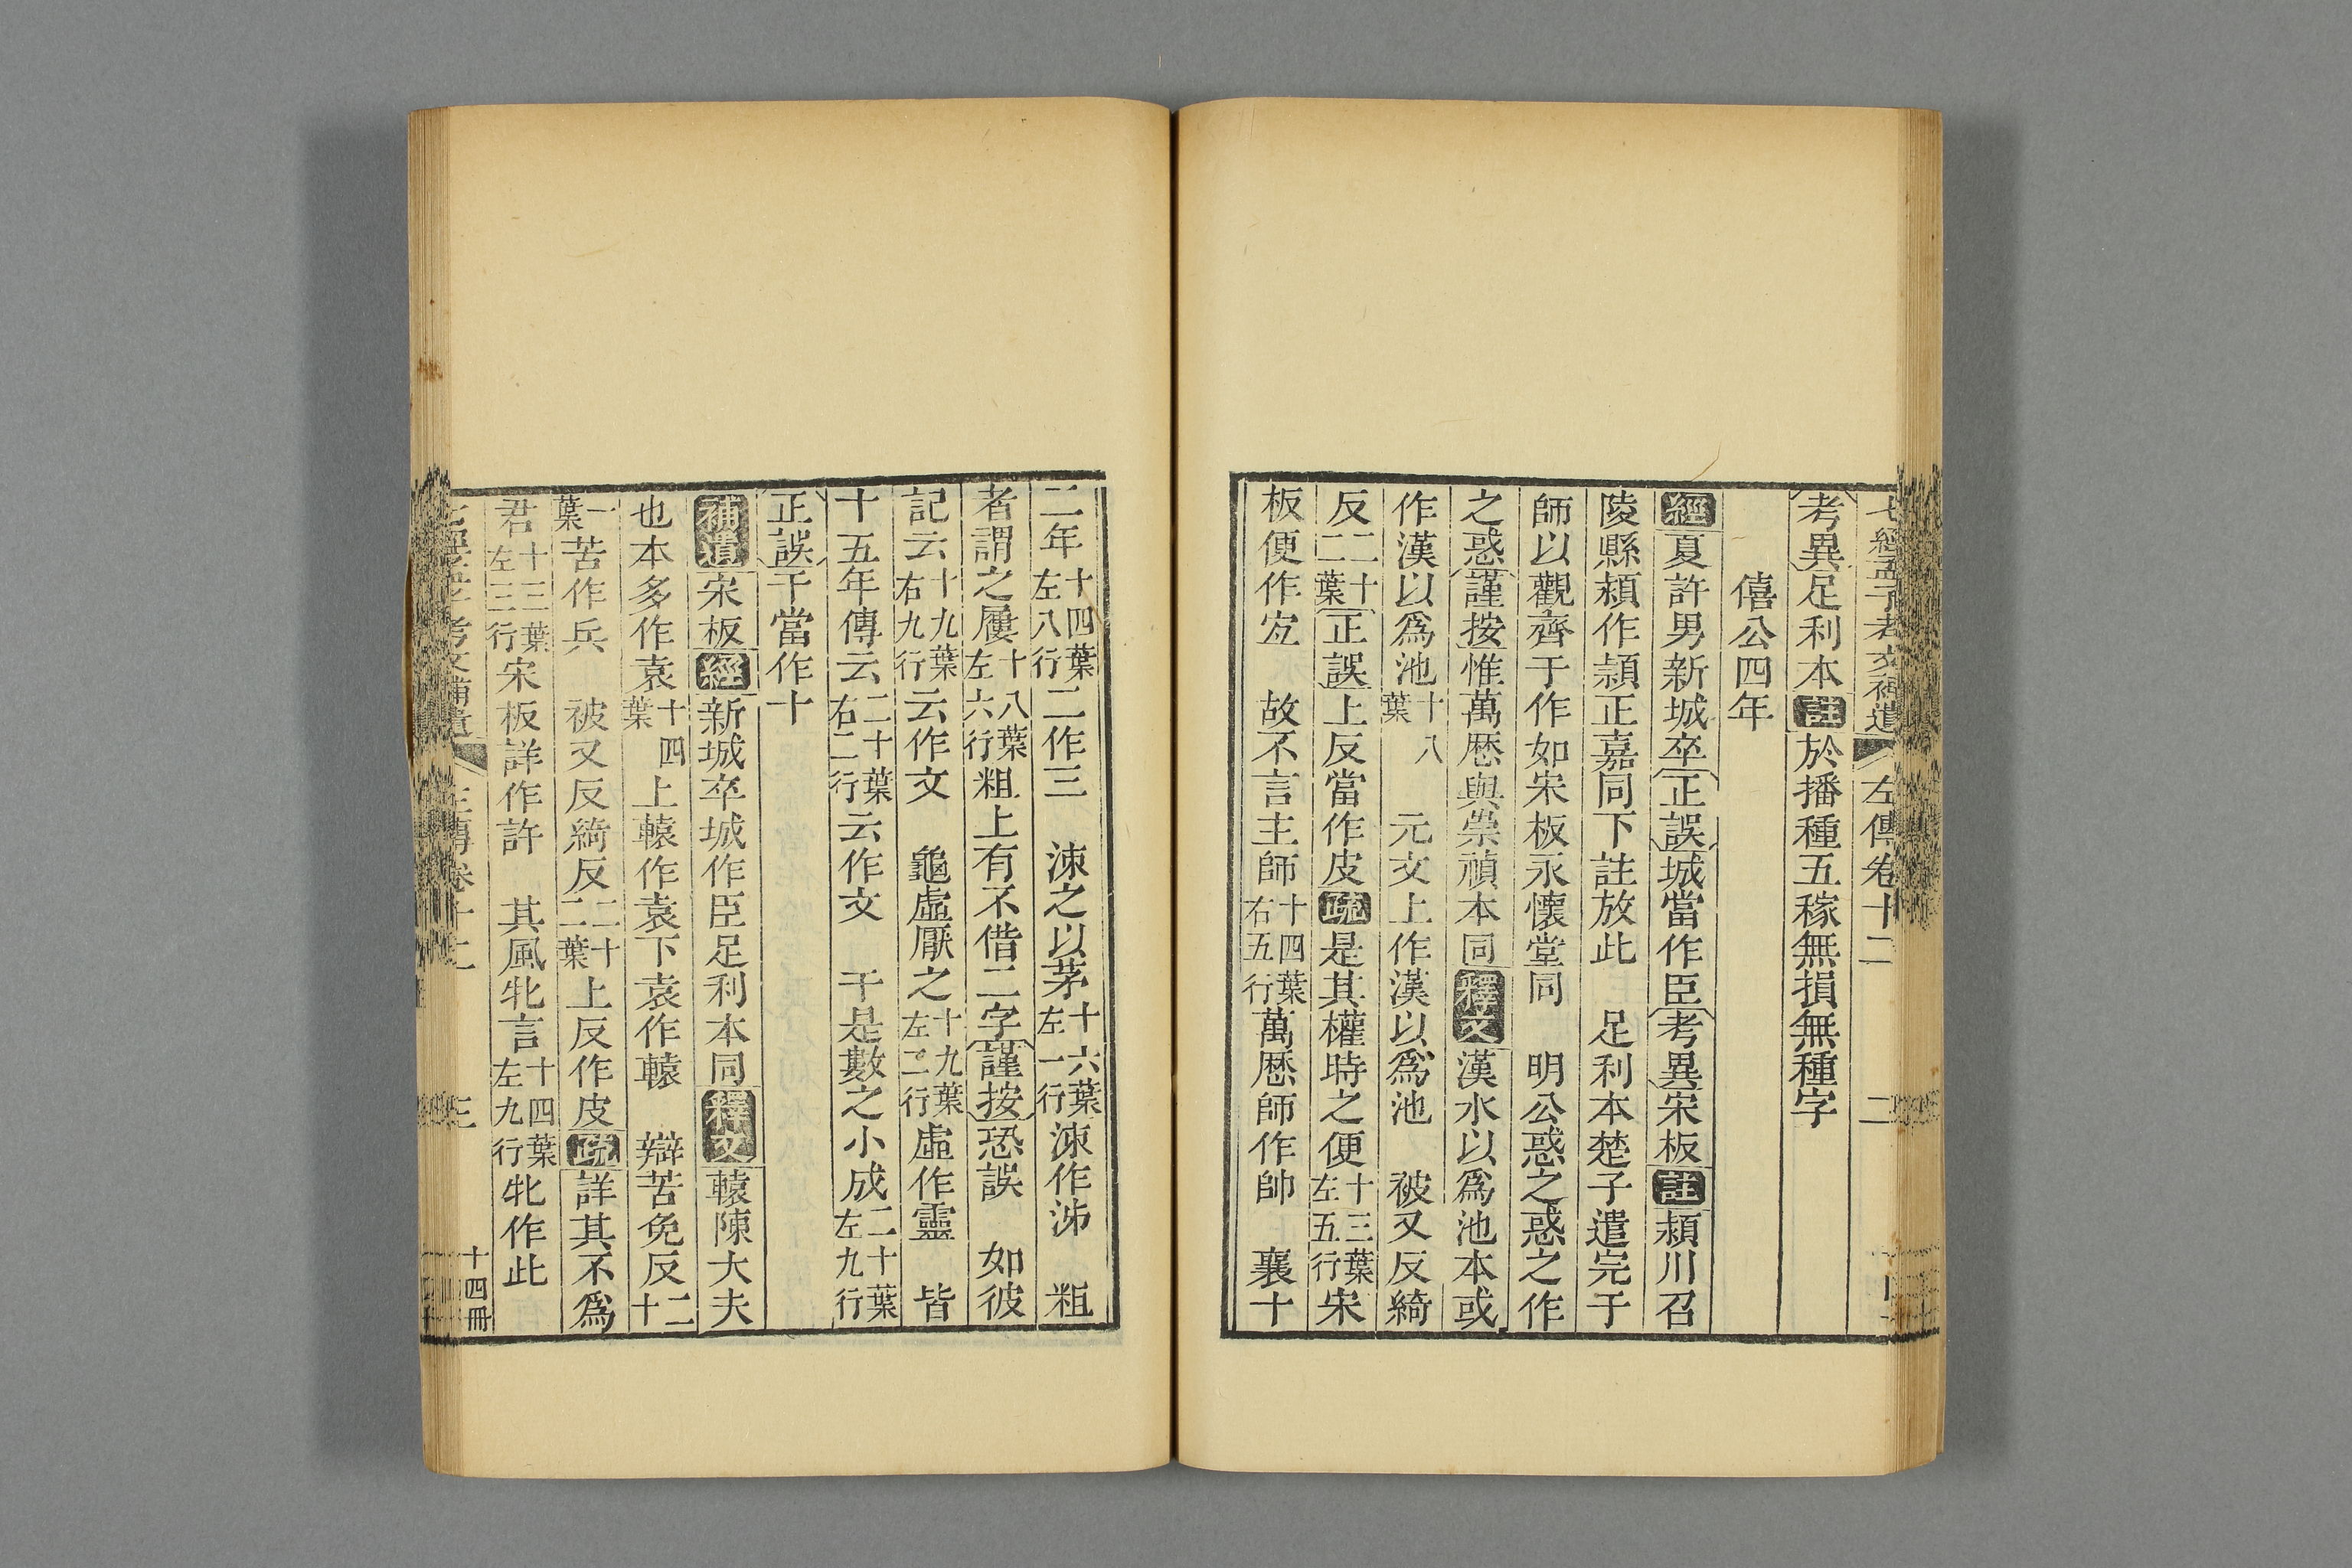 七經孟子考文補遺 左傳卷十二 二
考異足利本註於播種五稼無損無種字
僖公四年
經夏許男新城卒正誤城當作臣考異宋板註潁川召
陵縣潁作頴正嘉同下註放此 足利本楚子遣完于
師以觀齊于作如宋板永懷堂同 明公惑之惑之作
之惑謹按惟萬曆與崇禎本同釋文漢水以爲池本或
作漢以爲池十八葉 元文上作漢以爲池 被又反綺
反二十二葉正誤上反當作皮疏是其權時之便十三葉左五行宋
板便作宐 故不言主師十四葉右五行萬曆師作帥 襄十
二年十四葉左八行二作三 涑之以茅十六葉左一行涑作沛 粗
者謂之屨十八葉左六行粗上有不借二字謹按恐誤 如彼
記云十九葉右九行云作文 龜虛厭之十九葉左二行虛作靈 皆
十五年傳云二十葉右二行云作文 干是數之小成二十葉左九行
正誤干當作十
補遺宋板經新城卒城作臣足利本同釋文轅陳大夫
也本多作袁十四葉上轅作袁下袁作轅 辯苦免反二十
一葉苦作兵 被又反綺反二十二葉上反作皮疏詳其不爲
君十三葉左三行宋板詳作許 其風牝言十四葉左九行牝作此
考文補遺 左傳卷十二 三 十四冊